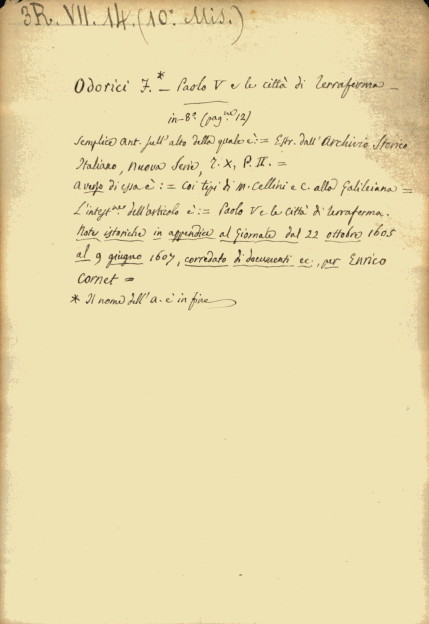 3R. VII. 14. (10° Mis.)
Odorici F.* — Paolo V e le città di terraferma —
in-8° (pag.ne 12)
Semplice ant. sull'alto della quale è := Estr. dall'Archivio Storico
Italiano, Nuova Serie, T. X, P. II. =
a verso di essa è := Coi tipi di M. Cellini e C. alla Galileiana =
L'intest.ne dell'articolo è := Paolo V e le città di terraferma.
Note istoriche in appendice al Giornale dal 22 ottobre 1605
al 9 giugno 1607, corredato di documenti ec., per Enrico
Cornet =
* Il nome dell'a. è in fine